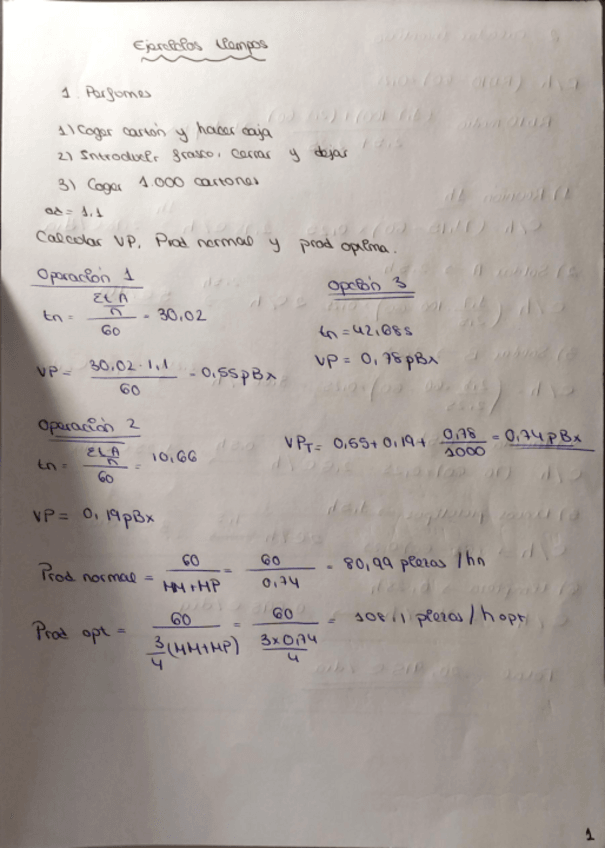 Ejercicios tiempos
1. Perfumes
1) Coger cartón y hacer caja
2) Introducir frasco, cerrar y dejar
3) Coger 1.000 cartones
as = 1,1
Calcular VP, Prod normal y prod optima.
Operación 1
tn = ΣtA/n / 60 = 30,02
VP = 30,02·1,1 / 60 = 0,55 pBx
Opción 3
tn = 42,08s
VP = 0,78 pBx
Operación 2
tn = ΣtA/n / 60 = 10,66
VP = 0,19 pBx
VPT = 0,55 + 0,19 + 0,78/1000 = 0,74 pBx
Prod normal = 60 / HM+MP = 60 / 0,74 = 80,99 piezas / hn
Prod opt = 60 / 3/4 (MM+MP) = 60 / 3x0,74/4 = 108,1 piezas / h opt
1